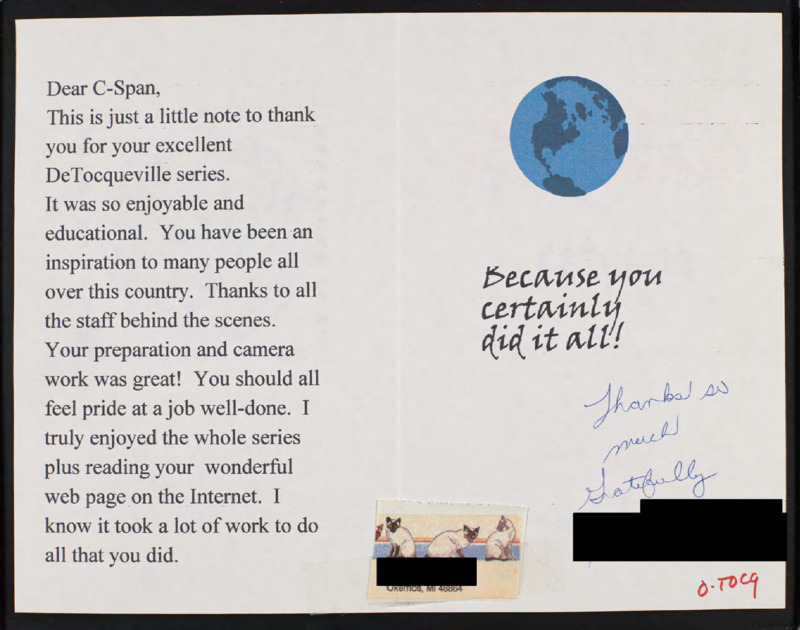 Dear C-Span,
This is just a little note to thank
you for your excellent
DeTocqueville series.
It was so enjoyable and
educational.  You have been an
inspiration to many people all
over this country.  Thanks to all
the staff behind the scenes.
Your preparation and camera
work was great!  You should all
feel pride at a job well-done.  I
truly enjoyed the whole series
plus reading your  wonderful
web page on the Internet.  I
know it took a lot of work to do
all that you did.
Because you
certainly
did it all!
Thanks so
much
Gratefully
Okemos, MI 48864
O-TOCQ